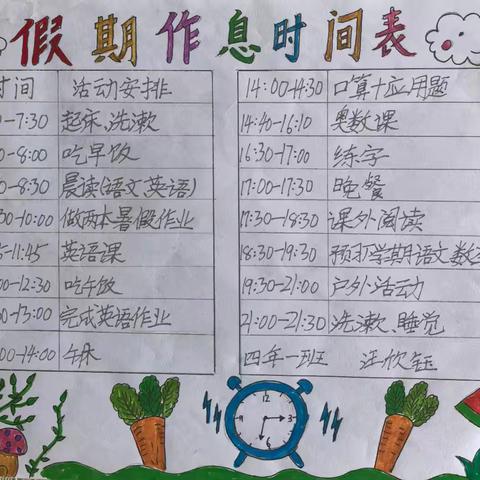 假期作息时间表
时间 活动安排
0-7:30 起床、洗漱
0-8:00 吃早饭
0-8:30 晨读(语文,英语)
30-10:00 做两本暑假作业
5-11:45 英语课
00-12:30 吃午饭
30-13:00 完成英语作业
00-14:00 午休
14:00-14:30 口算+应用题
14:40-16:10 奥数课
16:30-17:00 练字
17:00-17:30 晚餐
17:30-18:30 课外阅读
18:30-19:30 预习下学期语文数
19:30-21:00 户外活动
21:00-21:30 洗漱、睡觉
四年一班 汪欣钰
12
3
6